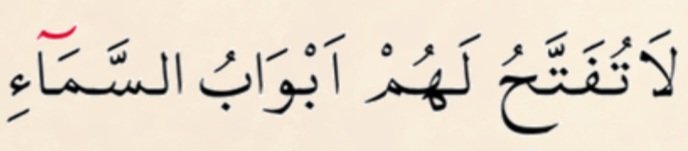 لَا تُفَتَّحُ لَهُمْ اَبْوَابُ السَّمَآءِ